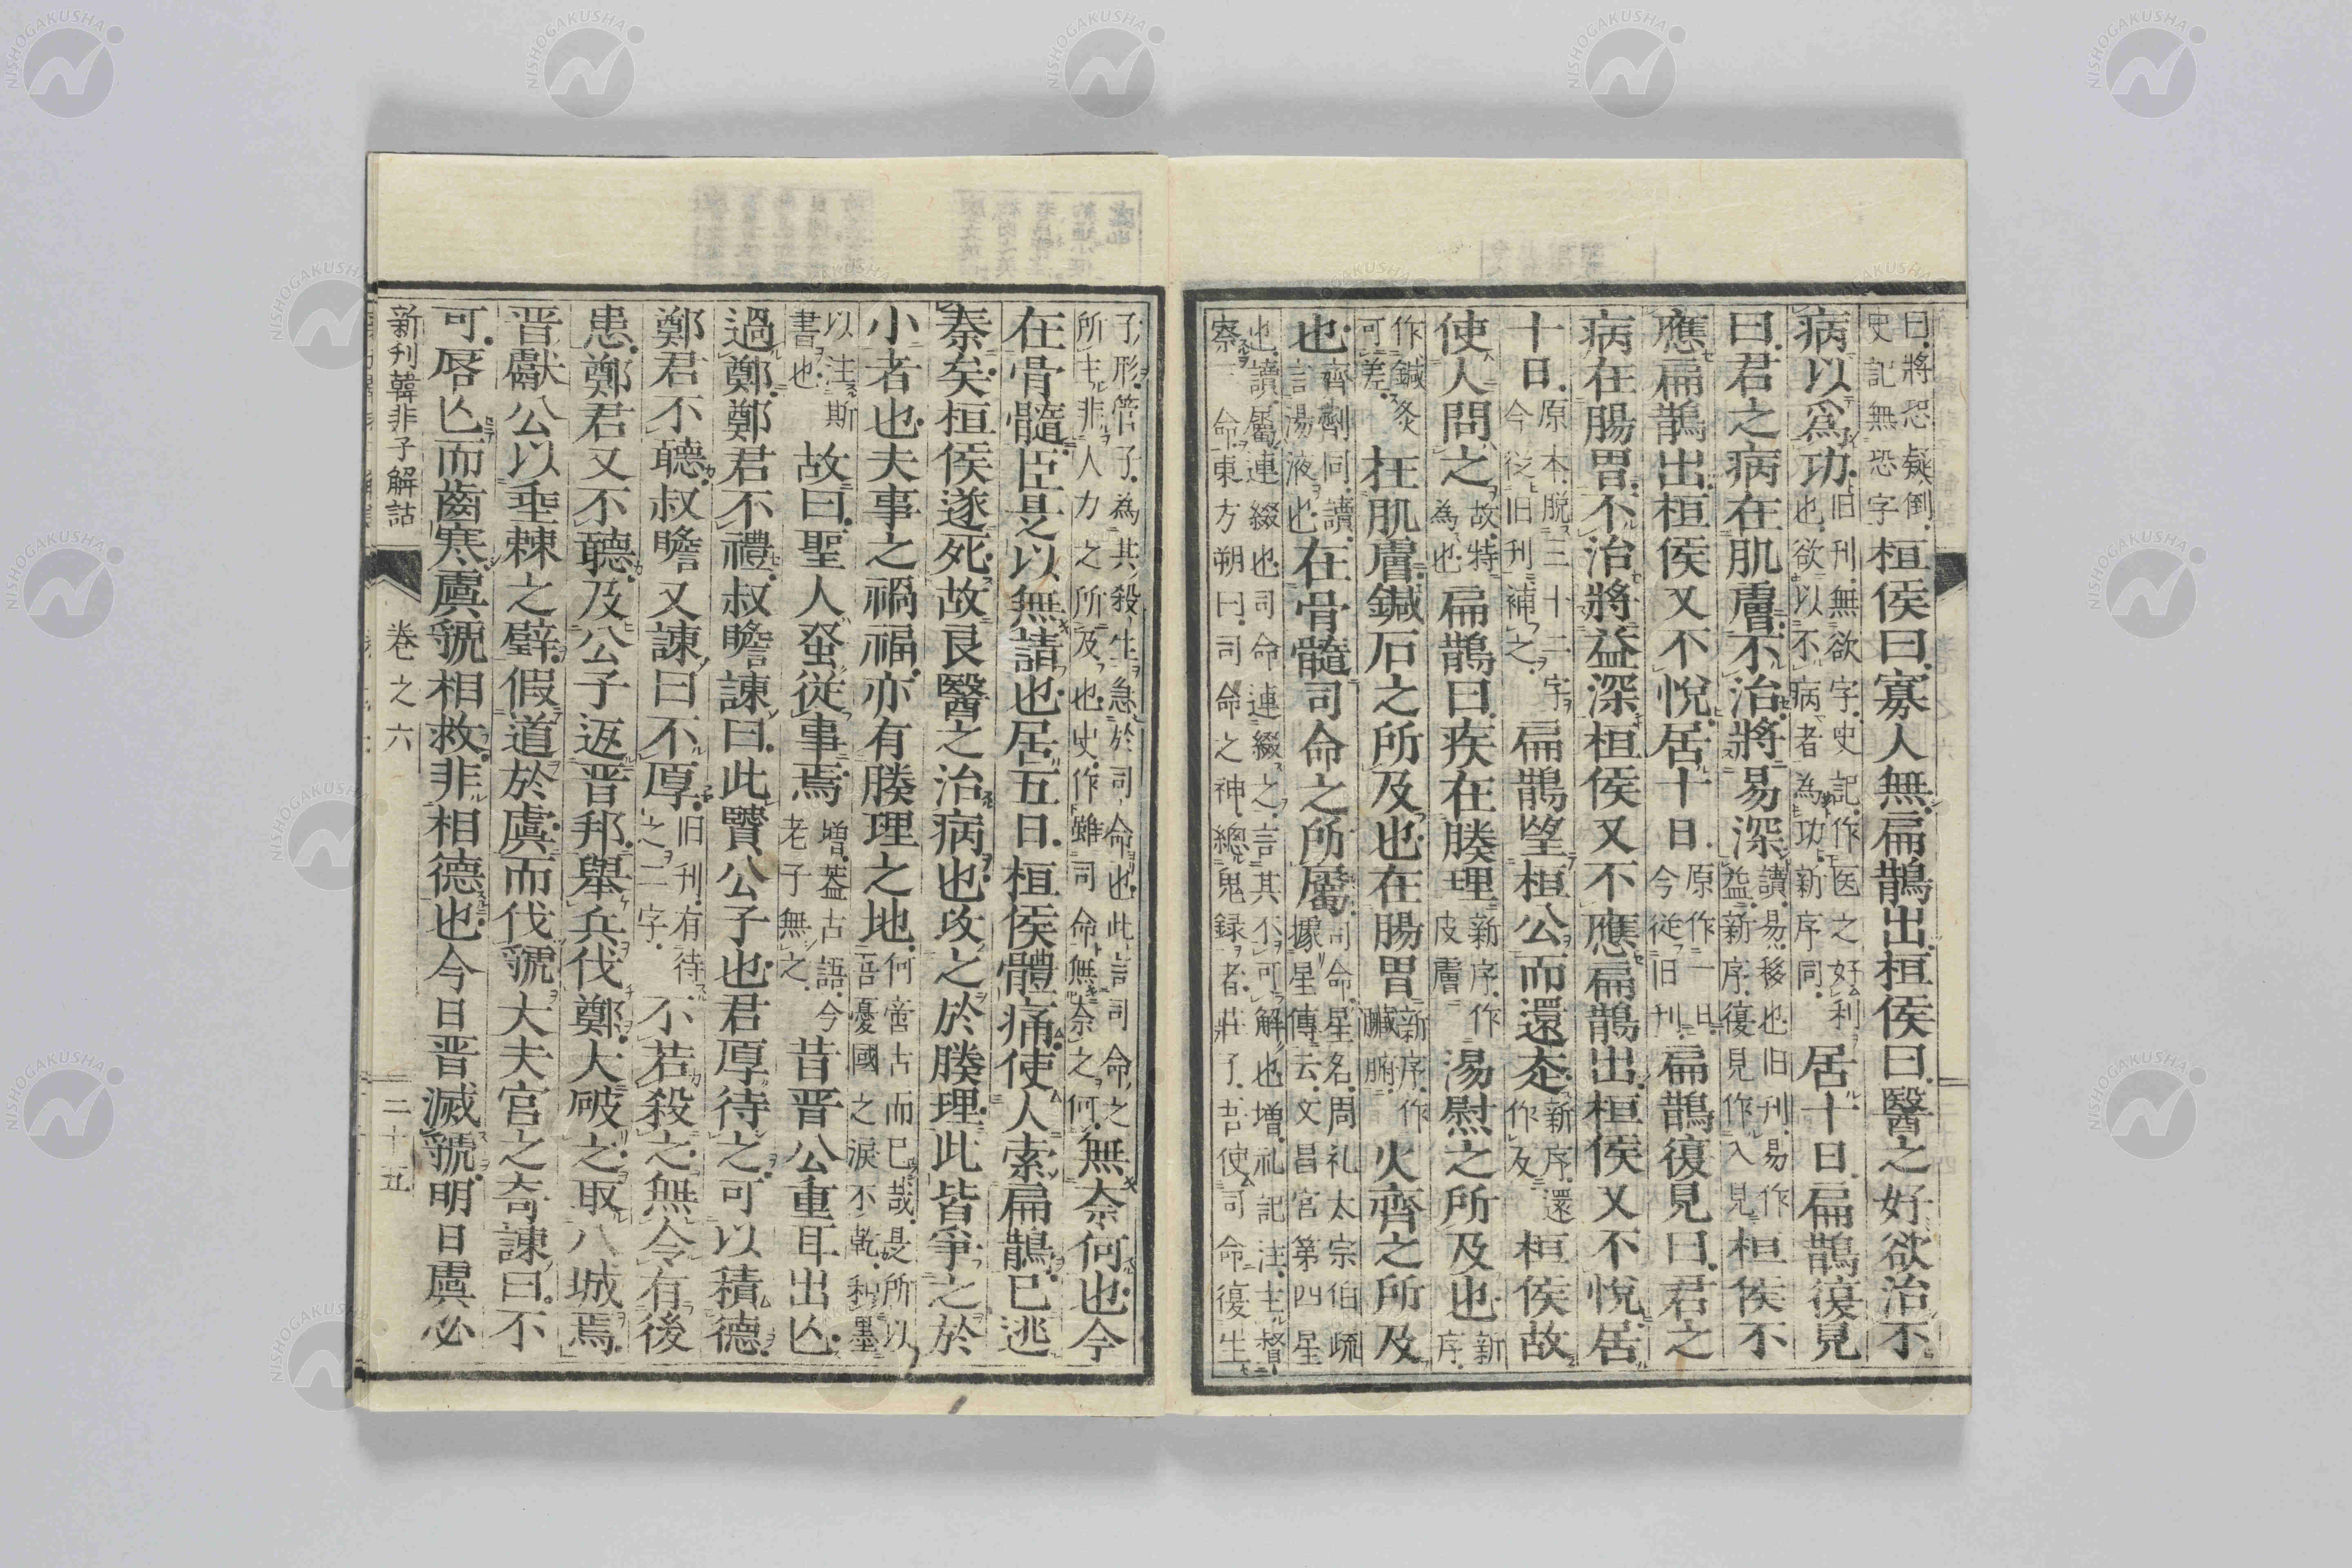 曰將恐疑倒史記無恐字桓侯曰寡人無扁鵲出桓侯曰醫之好欲治不
病以爲功旧刊無欲字史記作医之好利也欲以不病者為功新序同居十日扁鵲復見
曰君之病在肌膚不治將易深讀易移也旧刊易作益新序復見作入見桓侯不
應扁鵲出桓侯又不悅居十日原作一日今従旧刊扁鵲復見曰君之
病在腸胃不治將益深桓侯又不應扁鵲出桓侯又不悅居
十日原本脱三十二字今従旧刊補之扁鵲望桓公而還走新序還作反桓侯故
使人問之故特為也扁鵲曰疾在腠理新序作皮膚湯熨之所及也新序
作鍼灸可差在肌膚鍼石之所及也在腸胃新序作臟腑火齊之所及
也齊劑同讀言湯液也在骨髓司命之所屬司命星名周礼太宗伯疏據星傳云文昌宮第四星
也讀屬連綴也司命連綴之言其不可解也増礼記注主督察三命東方朔曰司命之神總鬼録者莊子吾使司命復生
子形管子為其殺生急於司命也此言司命之所主非人力之所及也史作雖司命無奈之何無奈何也今
在骨髓臣是以無請也居五日桓侯體痛使人索扁鵲已逃
秦矣桓侯遂死故良醫之治病也攻之於腠理此皆爭之於
小者也夫事之禍福亦有腠理之地何啻古而已哉是所以呂憂國之淚不乾和墨
以注斯書也故曰聖人蚤從事焉増葢古語今老子無之昔晋公重耳出亾
過鄭鄭君不禮叔瞻諫曰此賢公子也君厚待之可以積德
鄭君不聽叔瞻又諫曰不厚旧刊有待之二字不若殺之無令有後
患鄭君又不聽及公子返晋邦舉兵伐鄭大破之取八城焉
晋獻公以埀棘之璧假道於虞而伐虢大夫宮之奇諫曰不
可唇亾而齒寒虞虢相救非相德也今日晋滅虢明日虞必
新刊韓非子解詁
卷之六
二十五